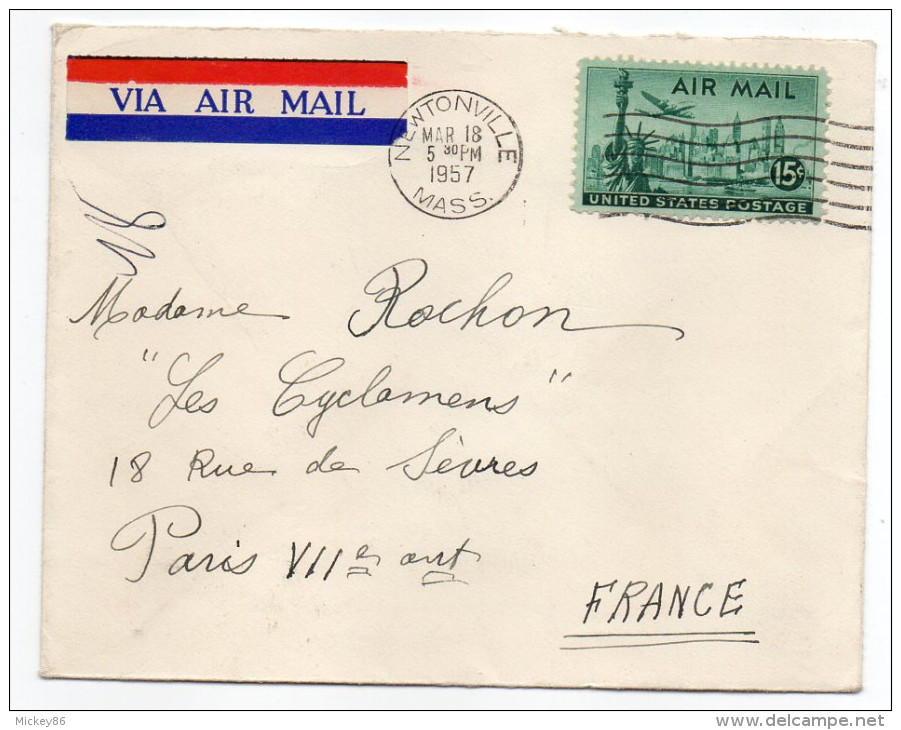 VIA AIR MAIL
NEWTONVILLE
MAR 18
5 30PM
1957
MASS.
AIR MAIL
15¢
UNITED STATES POSTAGE
Madame Rochon
"Les Cyclamens"
18 Rue de Sèvres
Paris VIIe arrt
FRANCE
Mickey86
www.delcampe.net